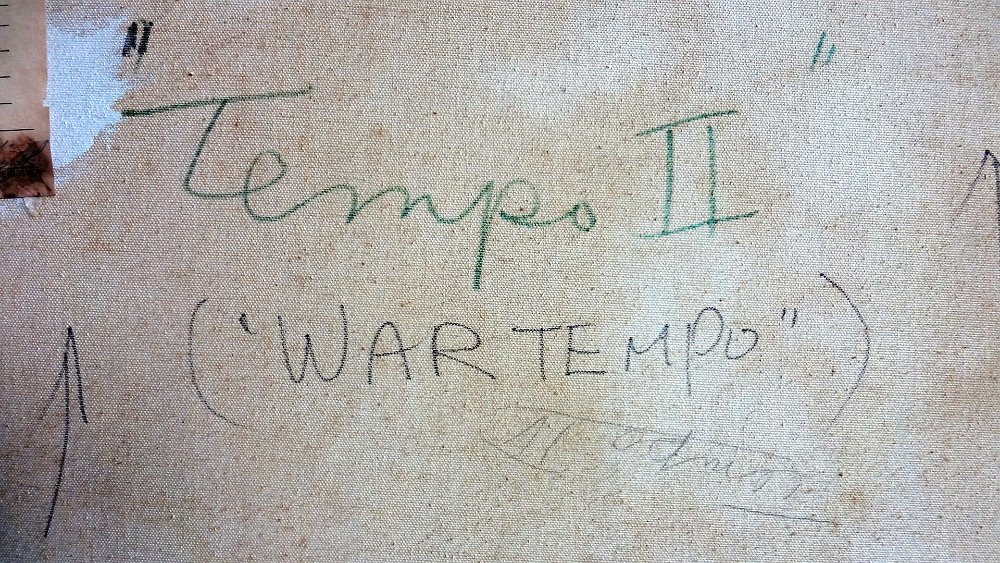 "Tempo II"
("WAR TEMPO")